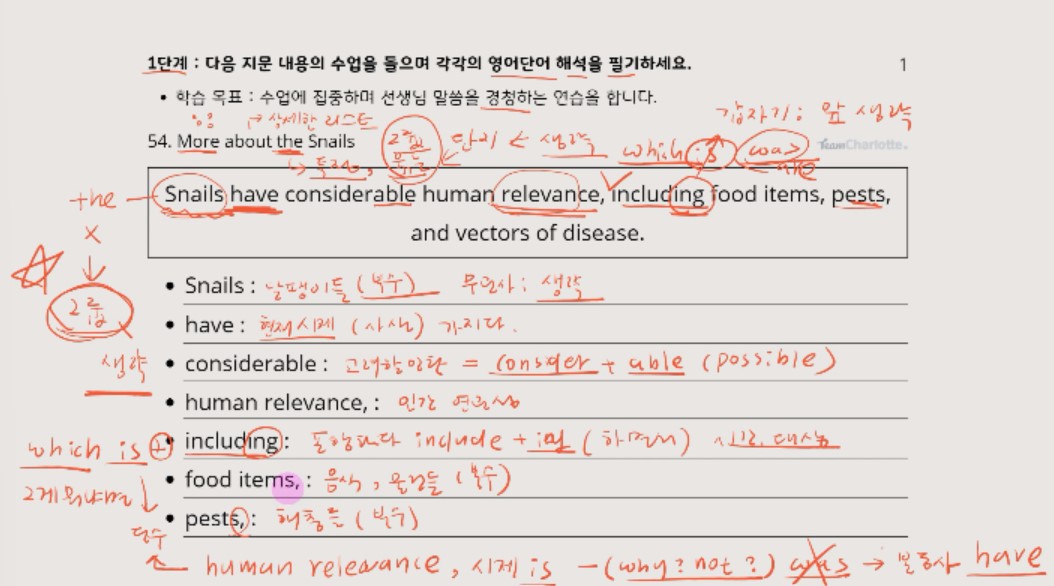 1단계 : 다음 지문 내용의 수업을 들으며 각각의 영어단어 해석을 필기하세요.
1
• 학습 목표 : 수업에 집중하며 선생님 말씀을 경청하는 연습을 합니다.
갑자기 : 앞 생략
상세한 리스트
54. More about the Snails
단어 < 생략 which is (was)
TeamCharlotte.
the
Snails have considerable human relevance, including food items, pests,
and vectors of disease.
X
• Snails : 달팽이들 (복수) 무관사 : 생략
• have : 현재시제 (사실) 가지다.
생략
• considerable : 고려할만한 = consider + able (possible)
• human relevance, : 인간 연관성
which is +
• including : 포함하다 include + ing (하면서)
• food items, : 음식, 물건들 (복수)
2개 뭐냐면
• pests, : 해충들 (복수)
단수
human relevance, 시제 is - (why? not?) was → 본동사 have